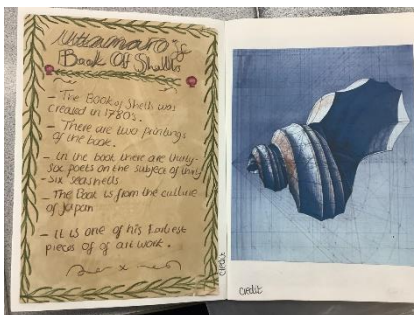 Utamaro's
Book Of Shells
- The Book of Shells was
created in 1780s.
- There are two printings
of the book.
- In the book there are thirty-
six poets on the subject of thirty
-six seashells
- The Book is from the culture
of Japan
- It is one of his Earliest
pieces of of art work.
credit
credit